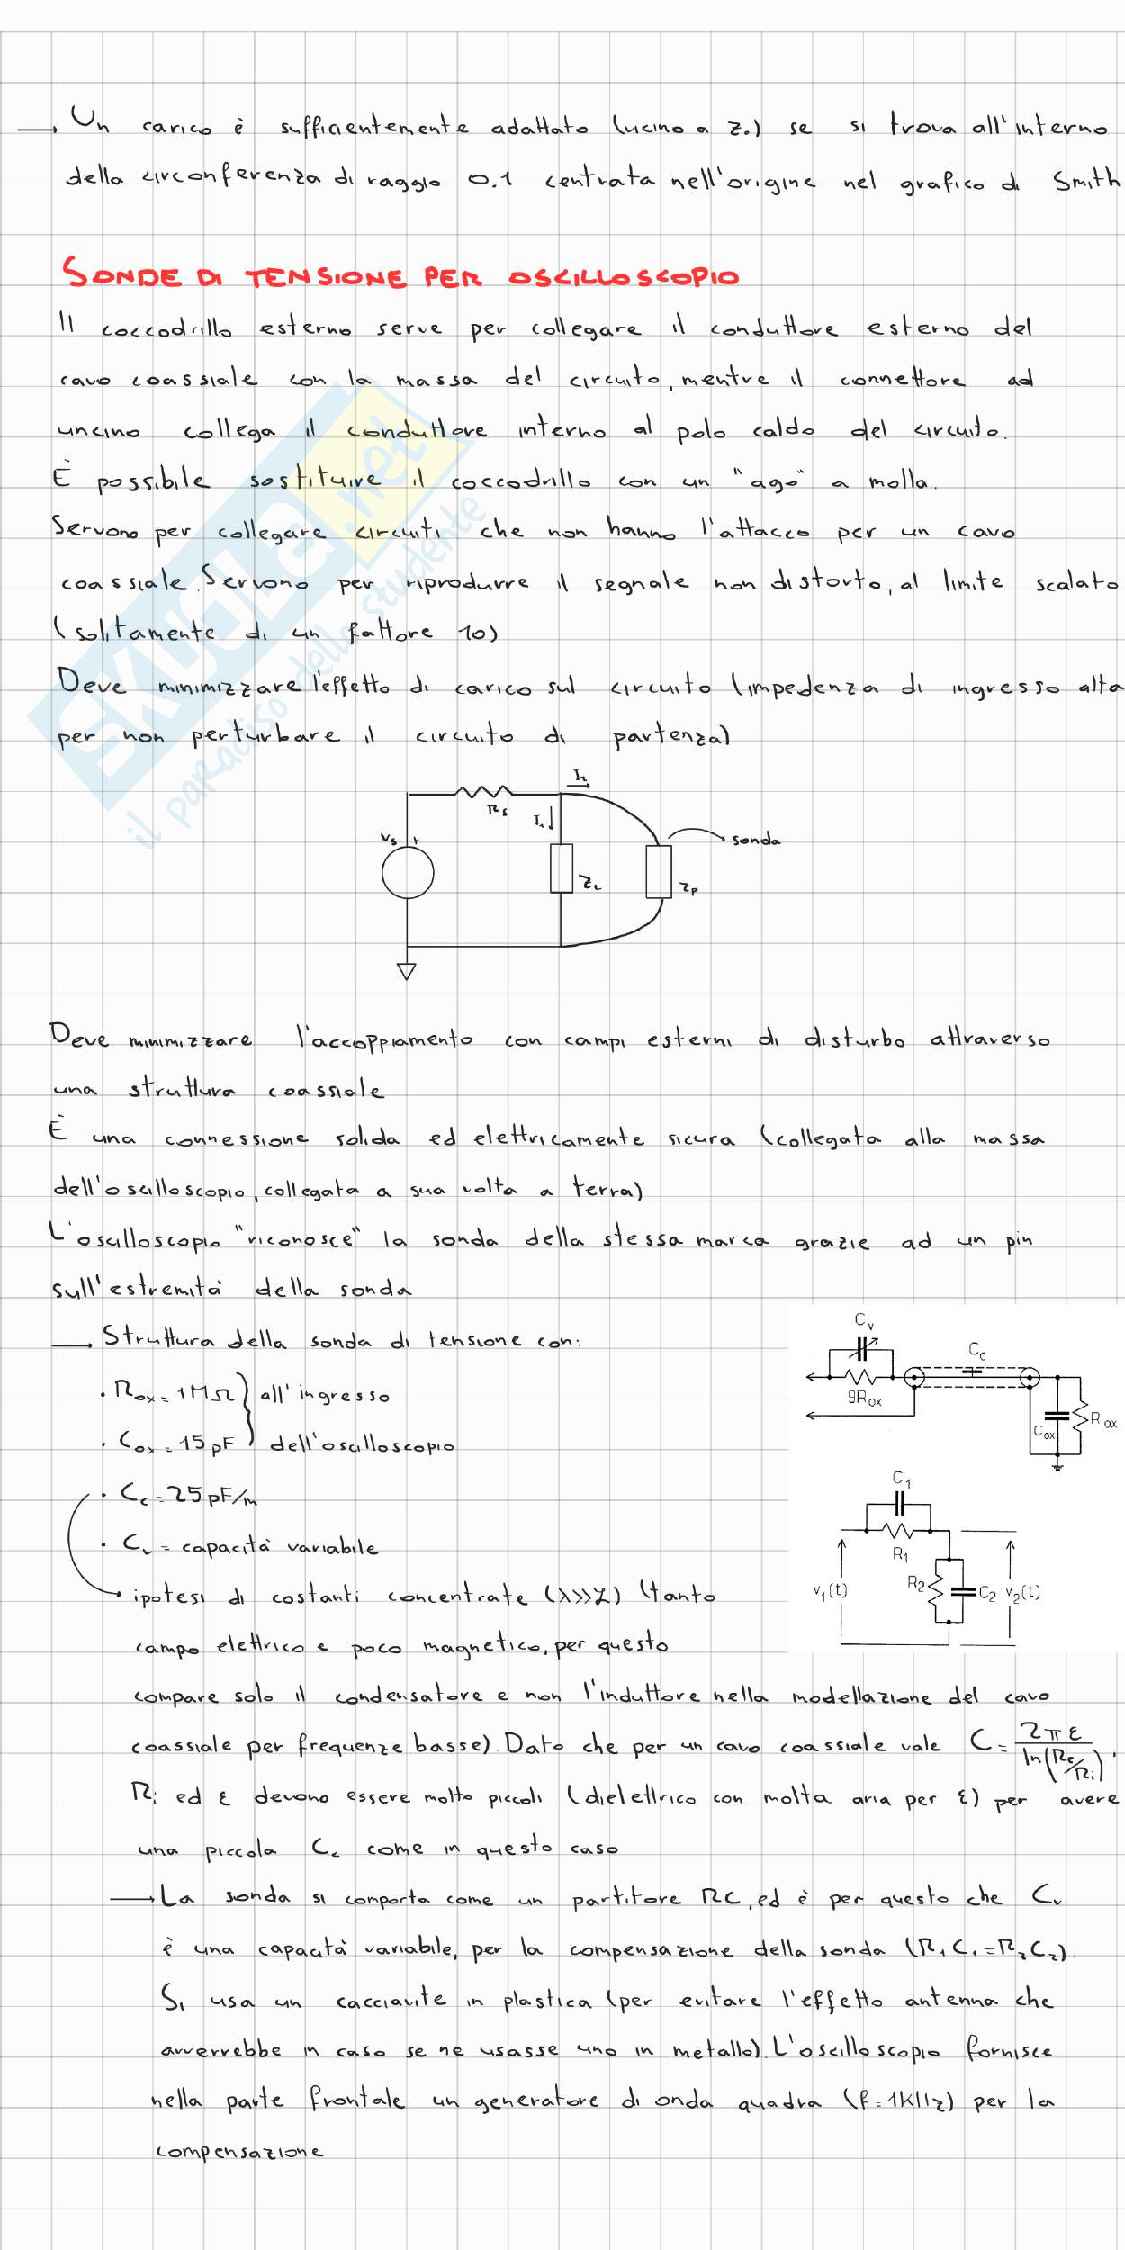 → Un carico è sufficientemente adattato (vicino a Z₀) se si trova all'interno
della circonferenza di raggio 0.1 centrata nell'origine nel grafico di Smith
SONDE DI TENSIONE PER OSCILLOSCOPIO
Il coccodrillo esterno serve per collegare il conduttore esterno del
cavo coassiale con la massa del circuito, mentre il connettore ad
uncino collega il conduttore interno al polo caldo del circuito.
È possibile sostituire il coccodrillo con un "ago" a molla.
Servono per collegare circuiti che non hanno l'attacco per un cavo
coassiale. Servono per riprodurre il segnale non distorto, al limite scalato
(solitamente di un fattore 10)
Deve minimizzare l'effetto di carico sul circuito (impedenza di ingresso alta
per non perturbare il circuito di partenza)
SKUOLA.net
il paradiso dello studente
I₂
Rs
I₁
Vs +
sonda
ZL
Zp
Deve minimizzare l'accoppiamento con campi esterni di disturbo attraverso
una struttura coassiale
È una connessione solida ed elettricamente sicura (collegata alla massa
dell'oscilloscopio, collegata a sua volta a terra)
L'oscilloscopio "riconosce" la sonda della stessa marca grazie ad un pin
sull'estremità della sonda
→ Struttura della sonda di tensione con:
· Rox = 1MΩ } all'ingresso
· Cox = 15pF } dell'oscilloscopio
· Cc = 25pF/m
· Cv = capacità variabile
Cv
Cc
9Rox
Cox
Rox
C1
R1
R2
C2
v1(t)
v2(t)
→ ipotesi di costanti concentrate (λ>>L) (tanto
campo elettrico e poco magnetico, per questo
compare solo il condensatore e non l'induttore nella modellazione del cavo
coassiale per frequenze basse). Dato che per un cavo coassiale vale C = 2πε / ln(Re/Ri),
Ri ed ε devono essere molto piccoli (dielettrico con molta aria per ε) per avere
una piccola Cc come in questo caso
→ La sonda si comporta come un partitore RC, ed è per questo che Cv
è una capacità variabile, per la compensazione della sonda (R₁C₁=R₂C₂)
Si usa un cacciavite in plastica (per evitare l'effetto antenna che
avverrebbe in caso se ne usasse uno in metallo). L'oscilloscopio fornisce
nella parte frontale un generatore di onda quadra (f=1kHz) per la
compensazione